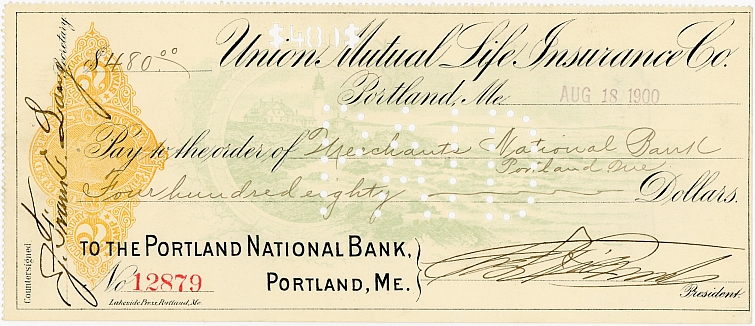 $480.00 Union Mutual Life Insurance Co.
Portland, Me. AUG 18 1900
Pay to the order of Merchants National Bank
Portland Me
Four hundred eighty Dollars.
TO THE PORTLAND NATIONAL BANK,
PORTLAND, ME.
No 12879
Lakeside Press, Portland, Me.
President.
Countersigned
Secretary.
PAID